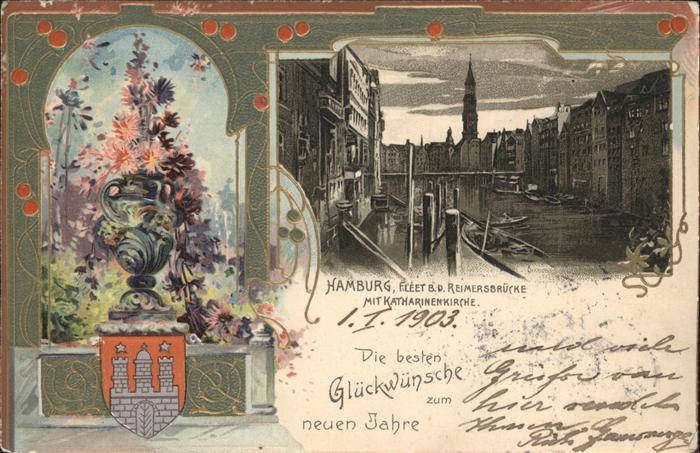 HAMBURG, FLEET B.D. REIMERSBRÜCKE
MIT KATHARINENKIRCHE.
1. I. 1903.
Die besten
Glückwünsche
zum
neuen Jahre
und viele
Grüsse von
hier sendet
Ihnen